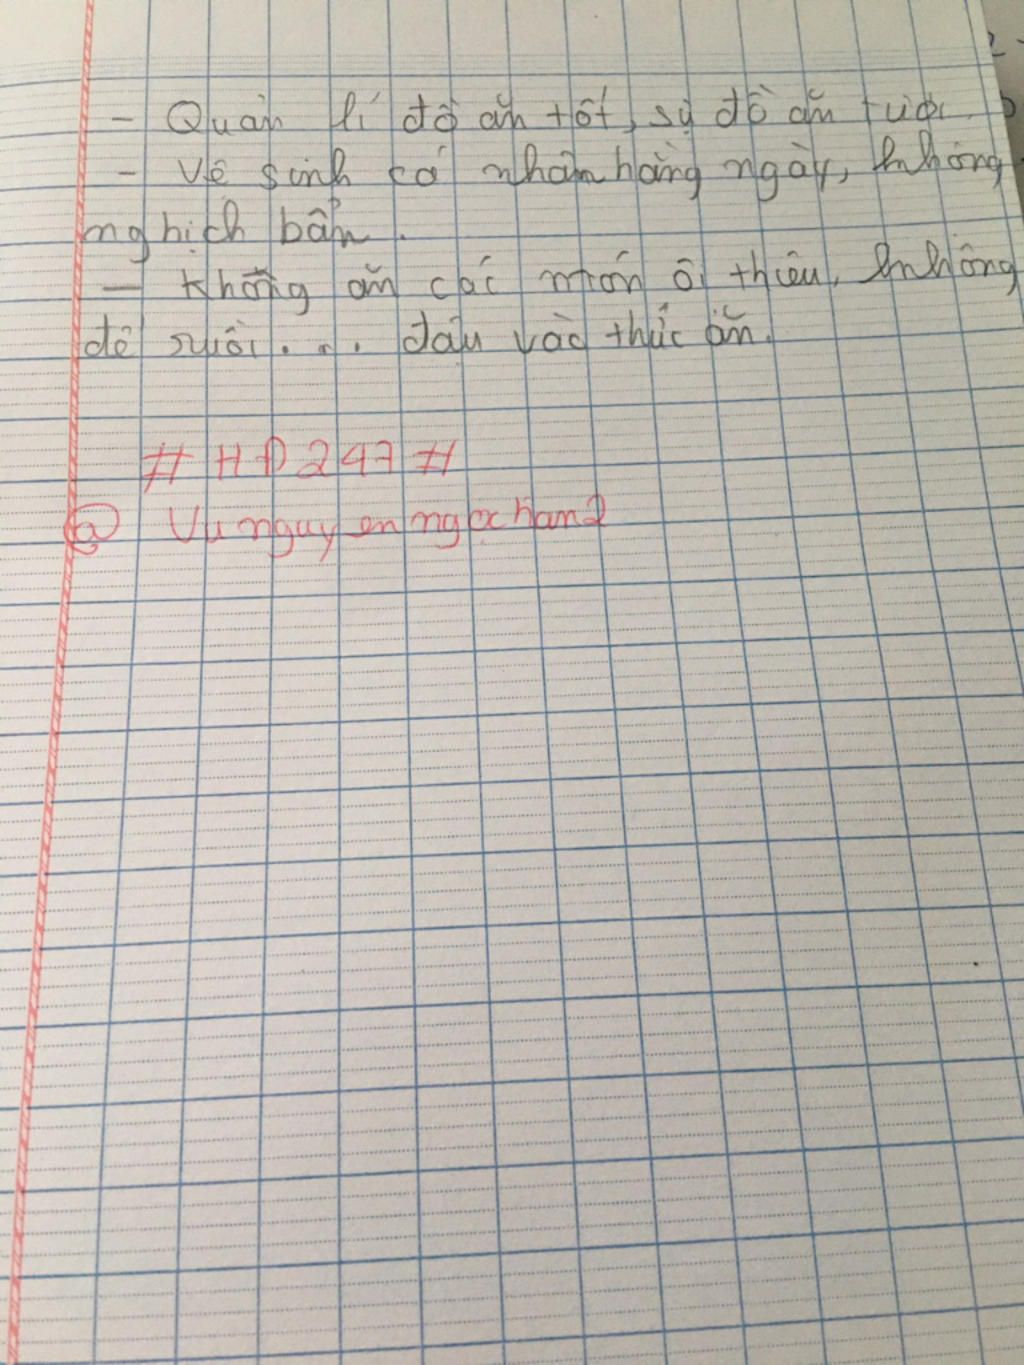 - Quản lí đồ ăn tốt, sử đồ ăn tươi.
- Vệ sinh cá nhân hàng ngày, không
nghịch bẩn.
- Không ăn các món ôi thiu, không
để ruồi... đậu vào thức ăn.
# HD247 #
@ Vunguyenngochan2